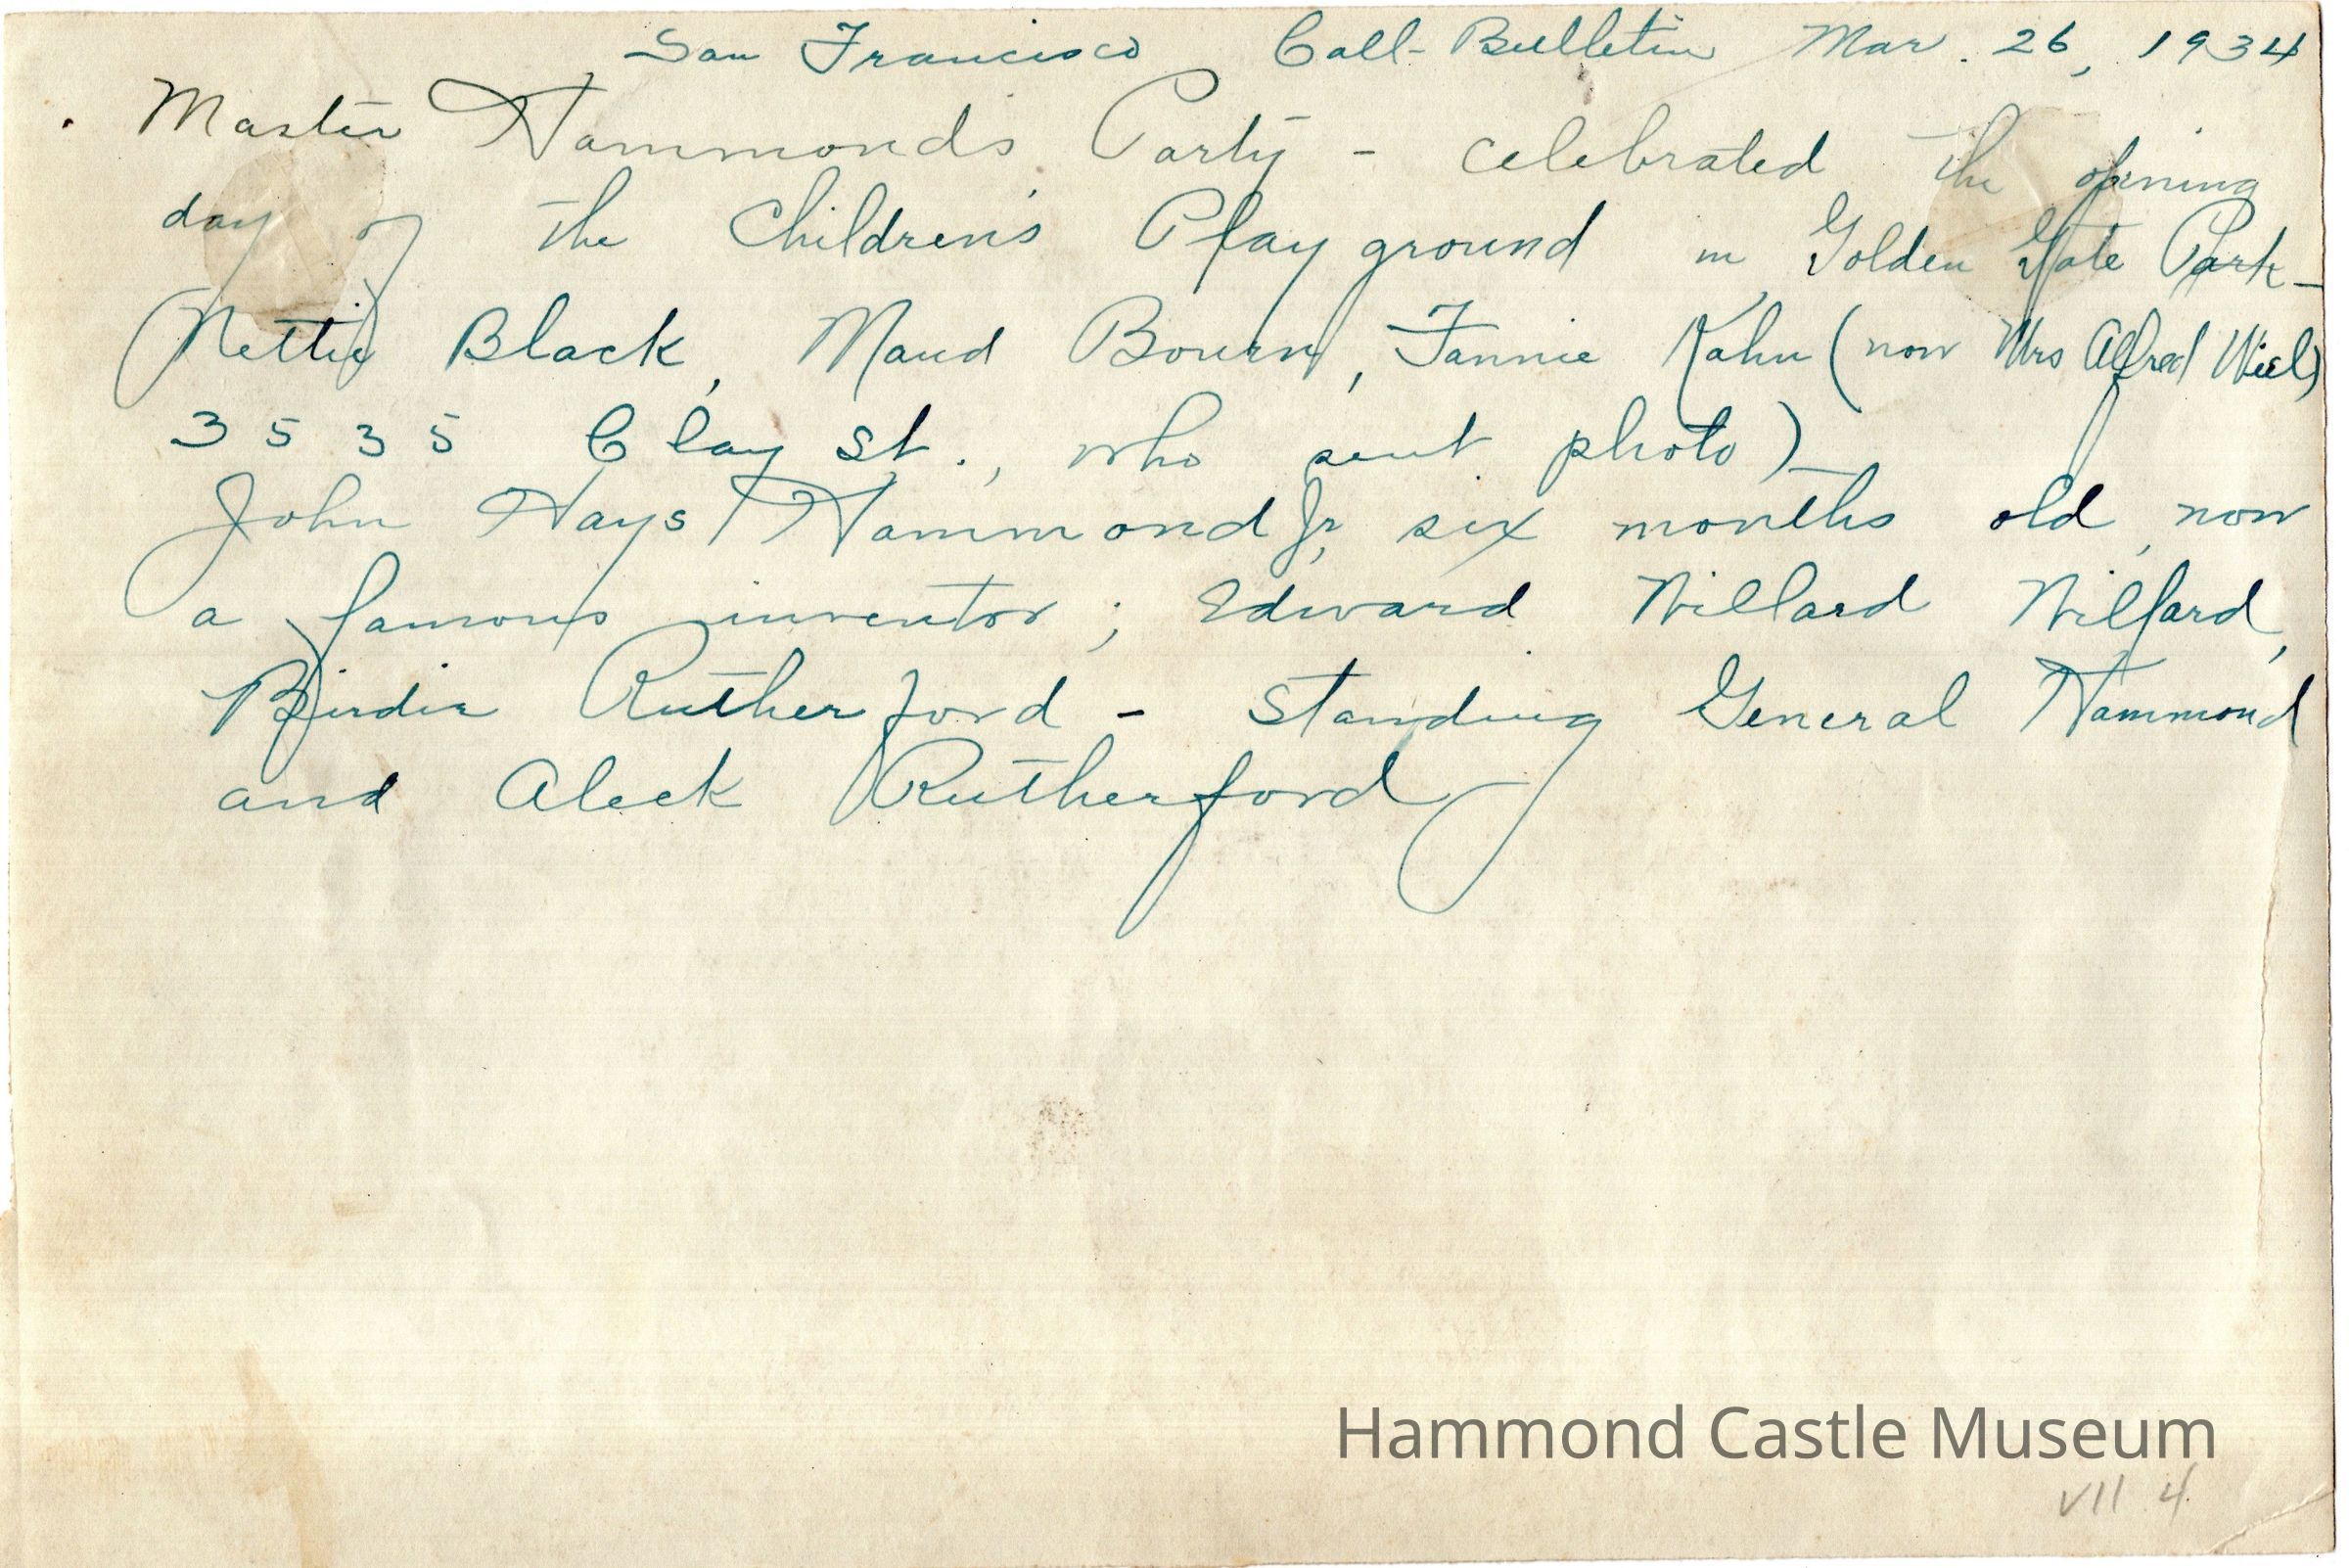 San Francisco Call-Bulletin Mar. 26, 1934
Master Hammond's Party - celebrated the opening
day of the Children's Playground in Golden Gate Park -
Nettie Black, Maud Bourn, Fannie Kahn (now Mrs Alfred Wiel)
3535 Clay St., who sent photo)
John Hays Hammond Jr, six months old, now
a famous inventor; Edward Willard Wilfard,
Birdie Rutherford - standing General Hammond
and Aleck Rutherford
Hammond Castle Museum
VII 4